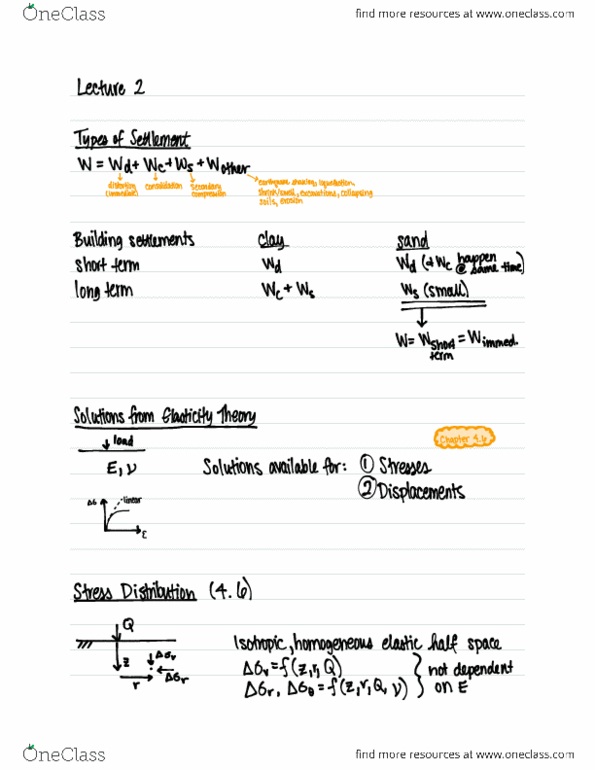 OneClass
find more resources at www.oneclass.com
Lecture 2
Types of Settlement
W = Wd + Wc + Ws + Wother
distortion (immediate)
consolidation
secondary compression
earthquake shaking, liquefaction,
shrink/swell, excavations, collapsing
soils, erosion
Building settlements clay sand
short term Wd Wd (+ Wc happen @ same time)
long term Wc + Ws Ws (small)
W = Wshort term = Wimmed.
Solutions from Elasticity Theory
Chapter 4.6
↓ load
E, ν Solutions available for: ① Stresses
② Displacements
Δσ linear
ε
Stress Distribution (4.6)
Q
z r Δσv Δσr
Isotropic, homogeneous elastic half space
Δσv = f(z, r, Q)
Δσr, Δσθ = f(z, r, Q, ν)
} not dependent
on E
OneClass
find more resources at www.oneclass.com